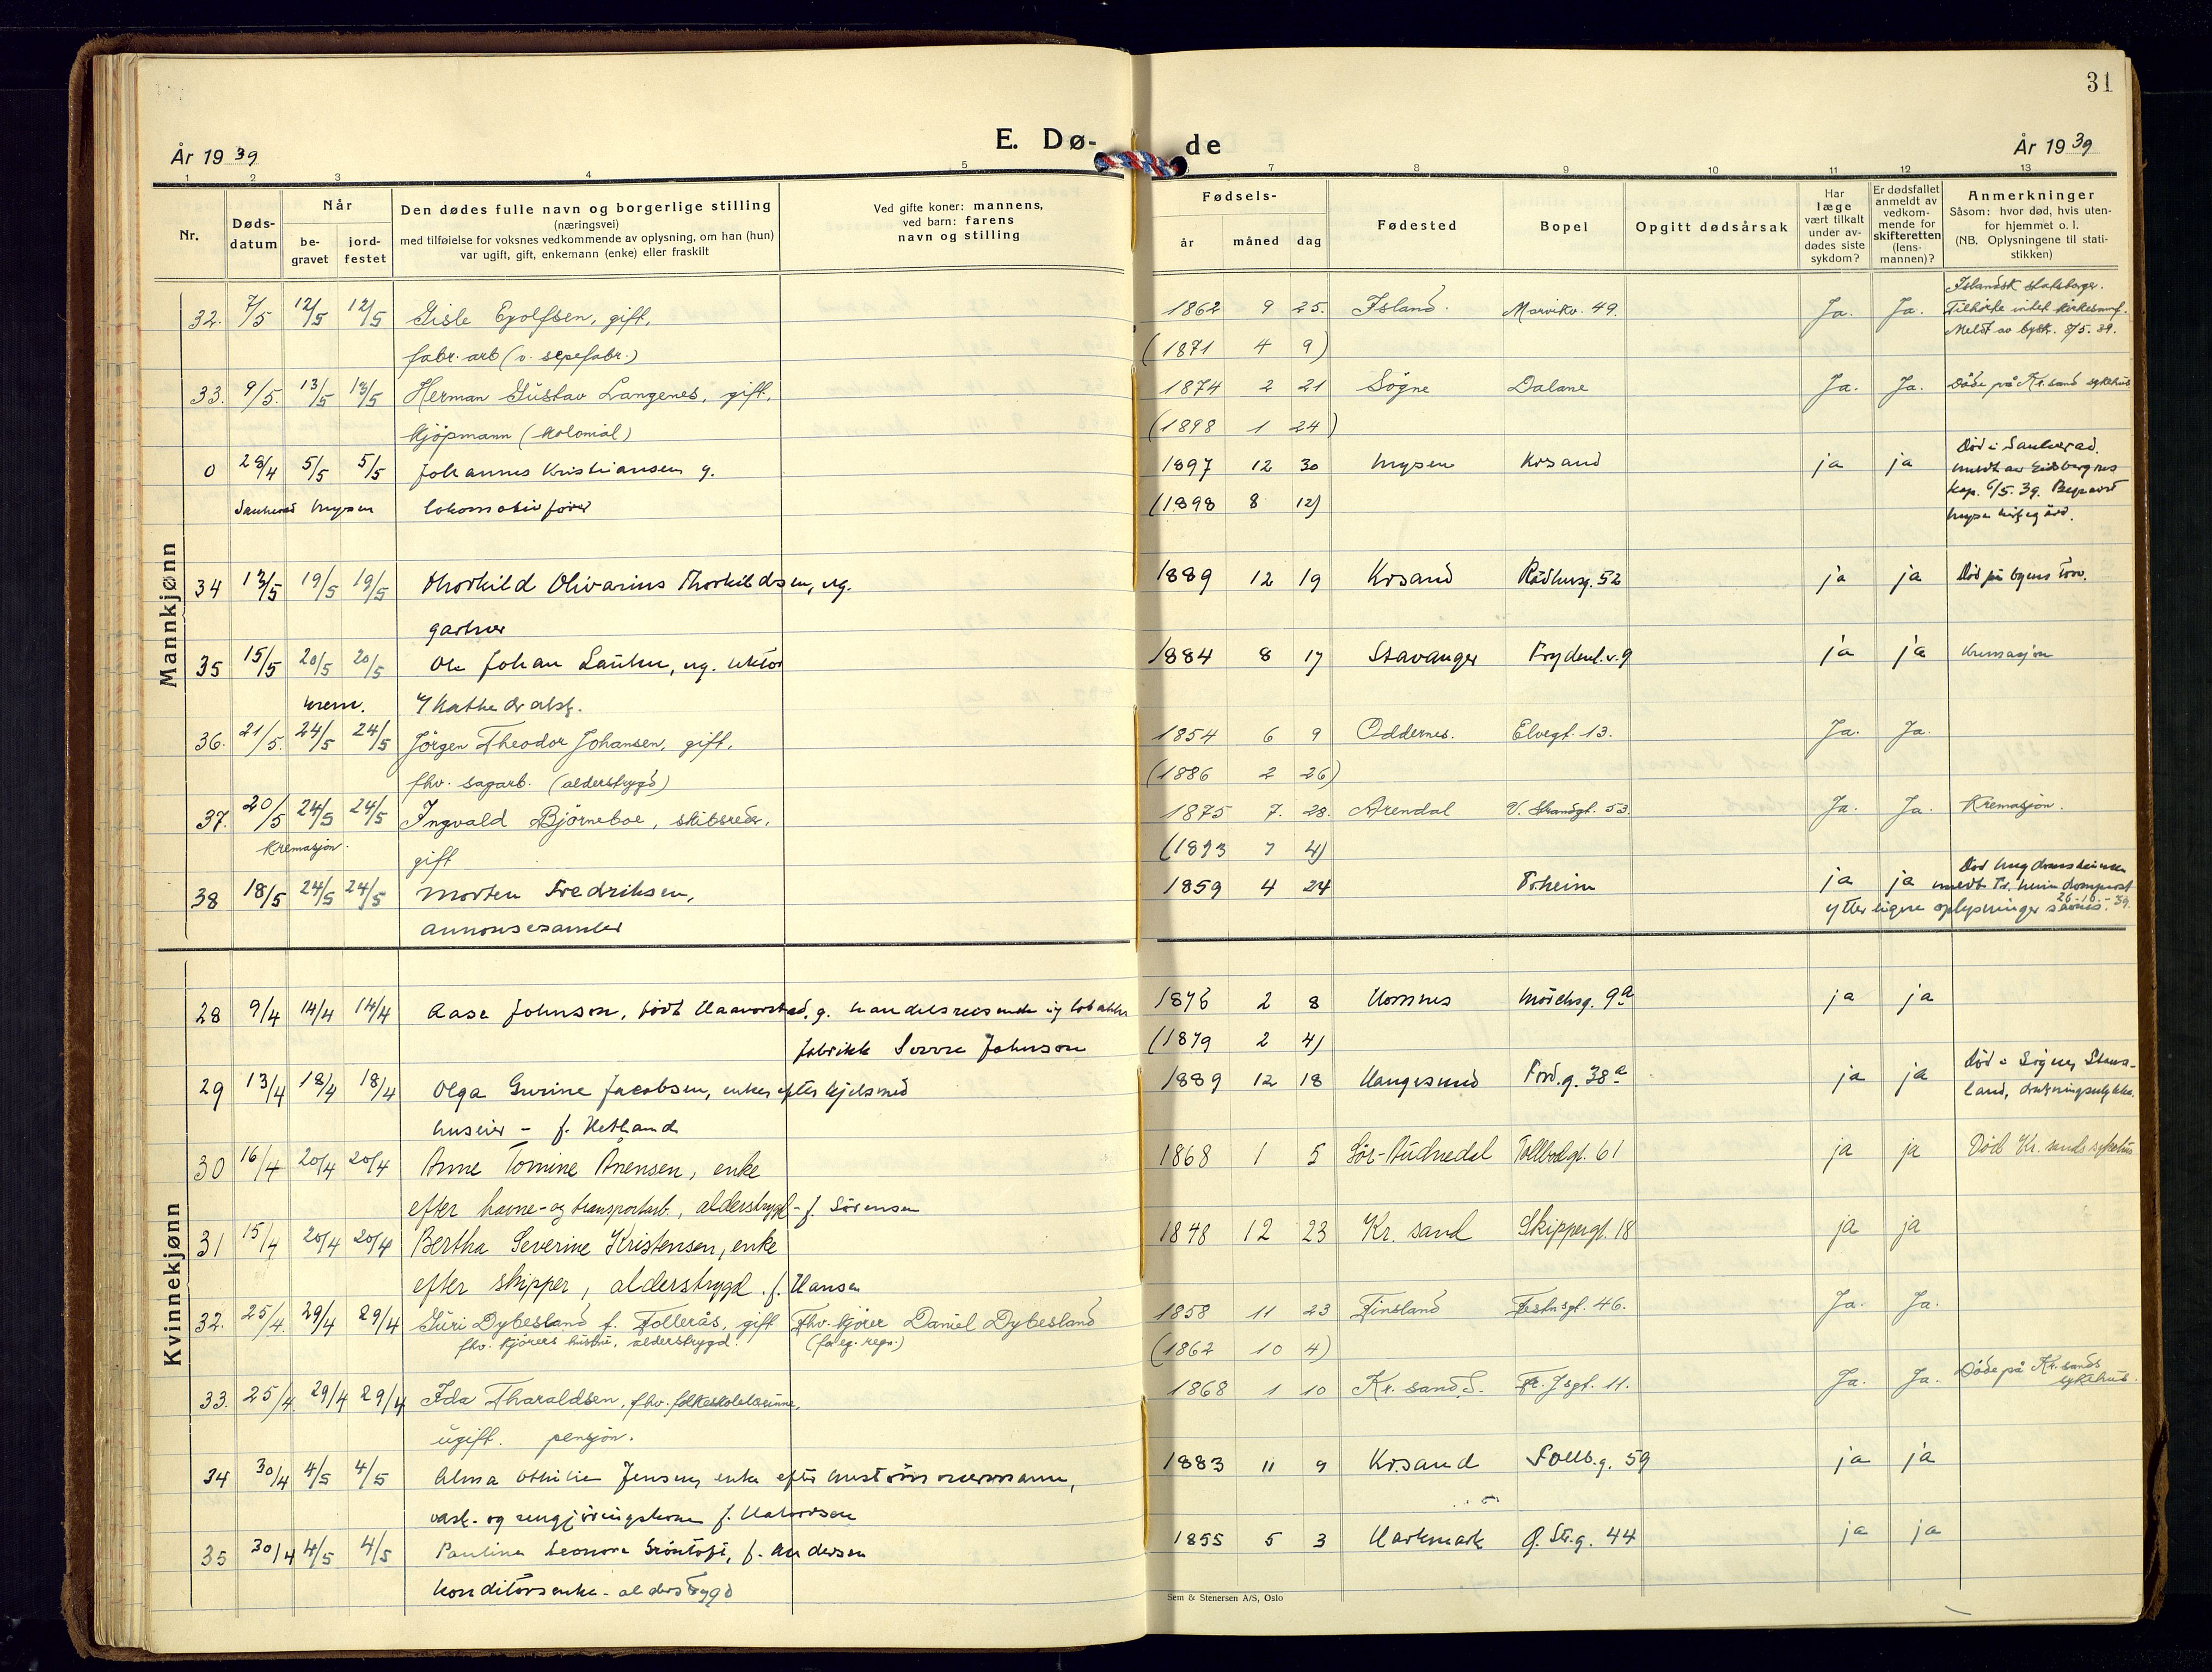 31
E. Dø- de
År 1939
År 1939
1 2 3 4 5 7 8 9 10 11 12 13
Nr.
Døds-
datum
Når
be-
gravet
jord-
festet
Den dødes fulle navn og borgerlige stilling
(næringsvei)
med tilføielse for voksnes vedkommende av oplysning, om han (hun)
var ugift, gift, enkemann (enke) eller fraskilt
Ved gifte koner: mannens,
ved barn: farens
navn og stilling
Fødsels-
år måned dag
Fødested
Bopel
Opgitt dødsårsak
Har
læge
vært tilkalt
under av-
dødes siste
sykdom?
Er dødsfallet
anmeldt av
vedkom-
mende for
skifteretten
(lens-
mannen)?
Anmerkninger
Såsom: hvor død, hvis uten-
for hjemmet o. l.
(NB. Oplysningene til stati-
stikken)
Mannkjønn
32. 7/5 12/5 12/5 Gisle Eyolfsen, gift, 1862 9 25. Island. Marvikv. 49. Ja. Ja. Islandsk statsborger.
Tilhørte intet kirkesamf.
Meldt av bysk. 8/5. 39.
fabr. arb (v. sepefabr.) (1871 4 9)
33. 9/5. 13/5 13/5 Herman Gustav Langenes, gift, 1874 2 21 Søgne Dalane Ja. Ja. Døde på Kr.sand sykehus
Kjøpmann (Kolonial) (1898 1 24)
0 28/4 5/5 5/5 Johannes Kristiansen g. 1897 12 30 Mysen Krsand ja ja Død i Sauherad.
meldt av Eidsberg res
kap. 6/5. 39. Begravet
Mysen kirkegård.
Sauherad Mysen lokomotivfører (1898 8 12)
34 13/5 19/5 19/5 Thorkild Olivarius Thorkildsen, ug. 1889 12 19 Krsand Rådhusg. 52 ja ja Død på byens torv.
gartner
35 15/5 20/5 20/5 Ole Johan Lauhn, ug. lektor 1884 8 17 Stavanger Frydenl.v. 9 ja ja Kremasjon
krem. v/ Kathedralsk.
36. 21/5. 24/5 24/5 Jörgen Theodor Johansen, gift, 1854 6 9 Oddernes. Elvegt. 13. Ja. Ja.
fhv. sagarb. (alderstrygd) (1886 2 26)
37. 20/5 24/5 24/5 Ingvald Björneboe, skibsreder, 1875 7. 28. Arendal V. Strandgt. 53. Ja. Ja. Kremasjon.
Kremasjon. gift (1893 7 4)
38 18/5 24/5 24/5 Morten Fredriksen, 1859 4 24 Tr.heim ja ja Død Ungdomsheimen
meldt Tr. heim domprost
26-10-39.
ytterligere oplysninger savnes.
annonsesamler
Kvinnekjønn
28 9/4 14/4 14/4 Aase Johnson, født Haavorstad, g. handelsreisende i tobakks 1876 2 8 Homnes Mørchsg. 9a ja ja
fabrikk Sverre Johnson (1879 2 4)
29 13/4 18/4 18/4 Olga Gurine Jacobsen, enke efter kjelsmed 1889 12 18 Haugesund Tord.g. 38a ja ja Død i Søgne, Staus-
land, drukningsulykke.
huseier - f. Hetland
30 16/4 20/4 20/4 Anne Tomine Arensen, enke 1868 1 5 Sør-Audnedal Tollbodgt. 61 ja ja Død Kr. sands sykehus
efter havne- og transportarb., alderstrygd - f. Sörensen
31 15/4 20/4 20/4 Bertha Severine Kristensen, enke 1848 12 23 Kr. sand Skippergt. 18 ja ja
efter skipper, alderstrygd. f. Hansen
32. 25/4. 29/4 29/4 Guri Dybesland f. Follerås, gift Fhv. kjører Daniel Dybesland 1858 11 23 Finsland Festnsgt. 46. Ja. Ja.
fhv. kjørers hustru, alderstrygd. (1862 10 4)
33. 25/4. 29/4 29/4 Ida Tharaldsen, fhv. folkeskolelærerinne, 1868 1 10 Kr. sand S. Fr. J sgt. 11. Ja. Ja. Døde på Kr.sands
sykehus.
ugift. pensjon.
34 30/4 4/5 4/5 Alma Othilie Jensen, enke efter 1883 11 9 Krsand Tollb.g. 59 ja ja
vask- og rengjøringskone f. Halvorsen
35 30/4 4/5 4/5 Pauline Leonora Gröntoft, f. Andersen 1855 5 3 Harkmark Ø. Str.g. 44 ja ja
konditorsenke - alderstrygd
Sem & Stenersen A/S, Oslo